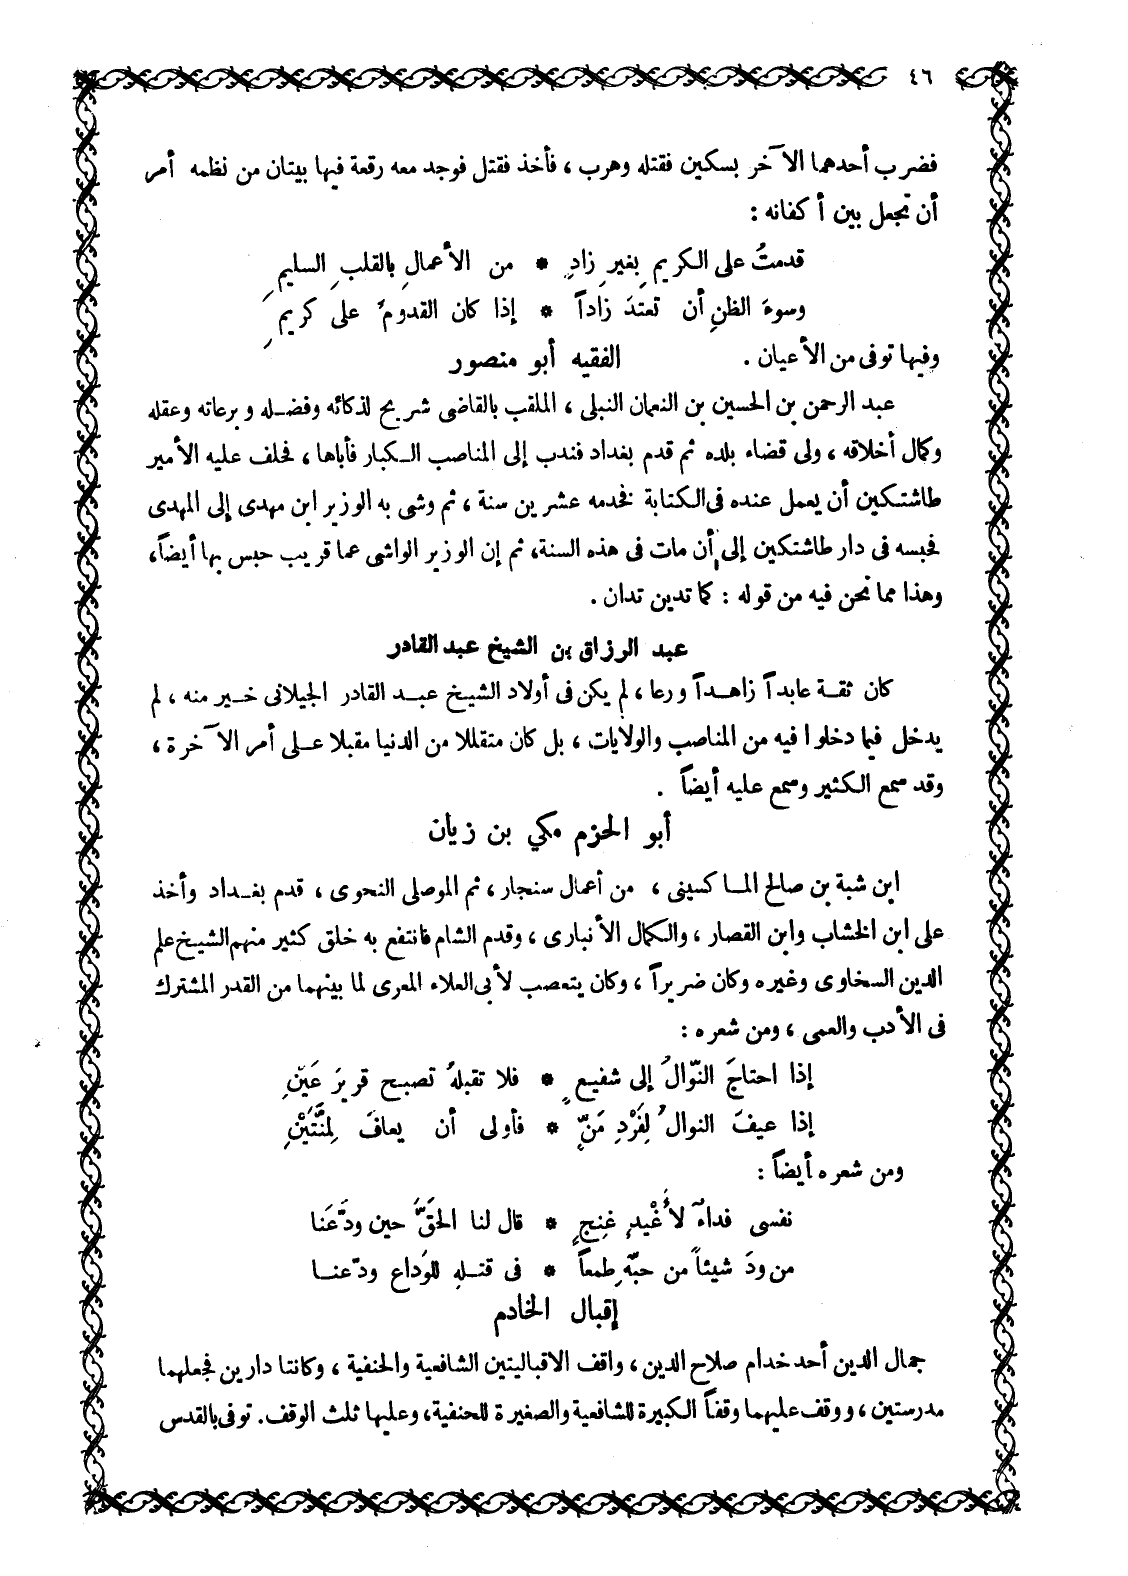 ٤٦
فضرب أحدهما الآخر بسكين فقتله وهرب ، فأخذ فقتل فوجد معه رقعة فيها بيتان من نظمه أمر
أن تجعل بين أكفانه :
قدمتُ على الكريمِ بغيرِ زادٍ * من الأعمالِ بالقلبِ السليمِ
وسوءَ الظنِ أن تعتدَ زاداً * إذا كان القدومُ على كريمِ
وفيها توفى من الأعيان . الفقيه أبو منصور
عبد الرحمن بن الحسين بن النعمان النبلى ، الملقب بالقاضى شريح لذكائه وفضله وبرعاته وعقله
وكمال أخلاقه ، ولى قضاء بلده ثم قدم بغداد فندب إلى المناصب الكبار فأباها ، فحلف عليه الأمير
طاشتكين أن يعمل عنده فى الكتابة فخدمه عشرين سنة ، ثم وشى به الوزير ابن مهدى إلى المهدى
فحبسه فى دار طاشتكين إلى أن مات فى هذه السنة، ثم إن الوزير الواشى عما قريب حبس بها أيضاً،
وهذا مما نحن فيه من قوله : كما تدين تدان .
عبد الرزاق بن الشيخ عبد القادر
كان ثقة عابداً زاهداً ورعا ، لم يكن فى أولاد الشيخ عبد القادر الجيلانى خير منه ، لم
يدخل فيما دخلوا فيه من المناصب والولايات ، بل كان متقللا من الدنيا مقبلا على أمر الآخرة ،
وقد سمع الكثير وسمع عليه أيضاً .
أبو الحزم مكي بن زيان
ابن شبة بن صالح الماكسينى ، من أعمال سنجار ، ثم الموصلى النحوى ، قدم بغداد وأخذ
على ابن الخشاب وابن القصار ، والكمال الأنبارى ، وقدم الشام فانتفع به خلق كثير منهم الشيخ علم
الدين السخاوى وغيره وكان ضريراً ، وكان يتعصب لأبى العلاء المعرى لما بينهما من القدر المشترك
فى الأدب والعمى ، ومن شعره :
إذا احتاجَ النّوالُ إلى شفيعٍ * فلا تقبلهُ تصبح قريرَ عَيّنِ
إذا عيفَ النوالُ لِفَرْدِ مَنٍّ * فأولى أن يعافَ لِمنَّتَيْنِ
ومن شعره أيضاً :
نفسى فداءٌ لأُغْيدٍ غنِجٍ * قال لنا الحَقَّ حين ودَّعَنا
من ودَ شيئاً من حبّهِ طمعاً * فى قتلهِ للوَداعِ ودّعنا
إقبال الخادم
جمال الدين أحد خدام صلاح الدين ، واقف الاقباليتين الشافعية والحنفية ، وكانتا دارين فجعلهما
مدرستين ، ووقف عليهما وقفاً الكبيرة للشافعية والصغيرة للحنفية، وعليها ثلث الوقف. توفى بالقدس